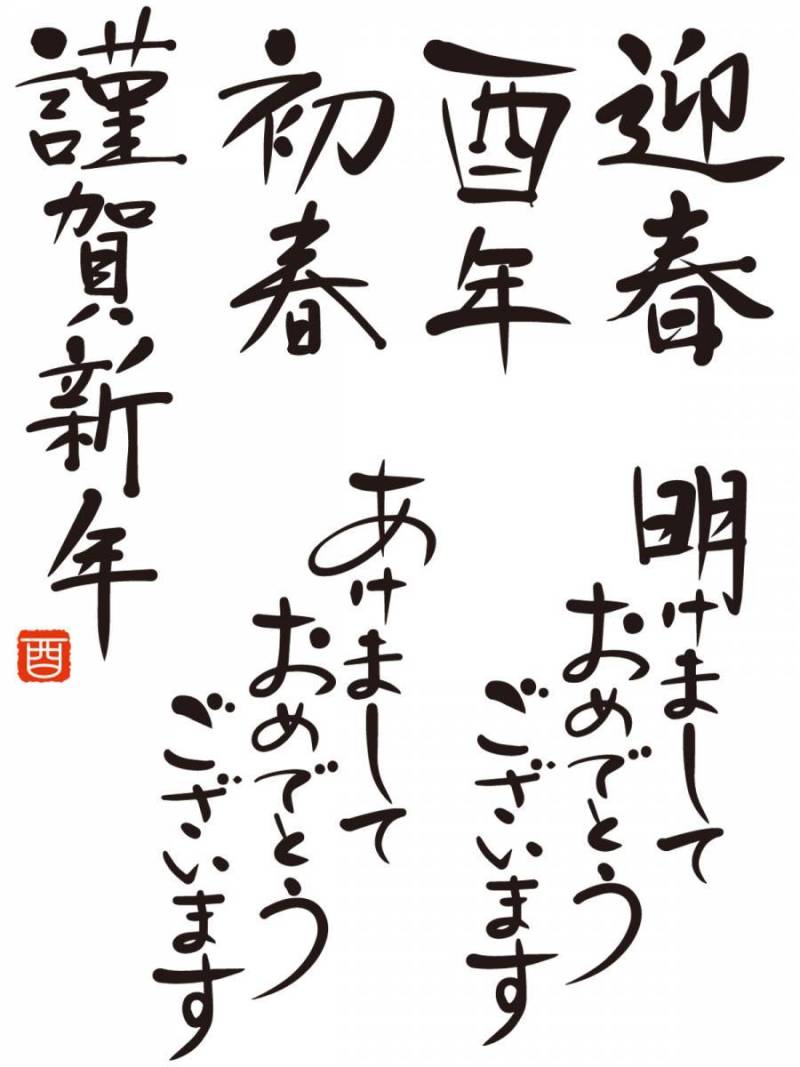 迎春
酉年
初春
謹賀新年
酉
明けまして
おめでとう
ございます
あけまして
おめでとう
ございます